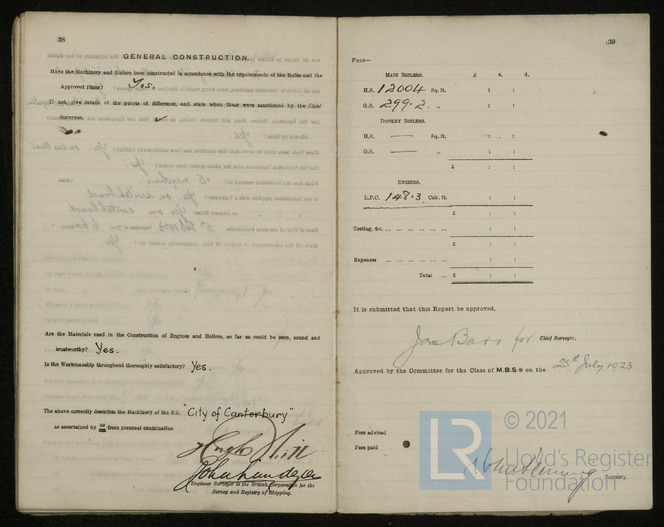 38
GENERAL CONSTRUCTION.
Have the Machinery and Boilers been constructed in accordance with the requirements of the Rules and the
Approved Plans? Yes.
If not, give details of the points of difference, and state when these were sanctioned by the Chief
Surveyor.
Are the Materials used in the Construction of Engines and Boilers, so far as could be seen, sound and
trustworthy? Yes.
Is the Workmanship throughout thoroughly satisfactory? Yes.
The above correctly describes the Machinery of the S.S. "City of Canterbury"
as ascertained by from personal examination
Engineer Surveyor to the British Corporation for the
Survey and Registry of Shipping.
39
Fees—
MAIN BOILERS. £ s. d.
H.S. 12004 Sq. ft. : :
G.S. 299.2 „ : :
DONKEY BOILERS.
H.S. — Sq. ft. : :
G.S. — „ : :
£ : :
ENGINES.
L.P.C. 148.3 Cub. ft. : :
£ : :
Testing, &c. ... ... ... ... ... : :
£ : :
Expenses ... ... ... ... ... : :
Total ... £ : :
It is submitted that this Report be approved,
for Chief Surveyor.
Approved by the Committee for the Class of M.B.S.* on the 25th July 1923
Fees advised
Fees paid
Secretary.
© 2021
LR
Lloyd's Register
Foundation